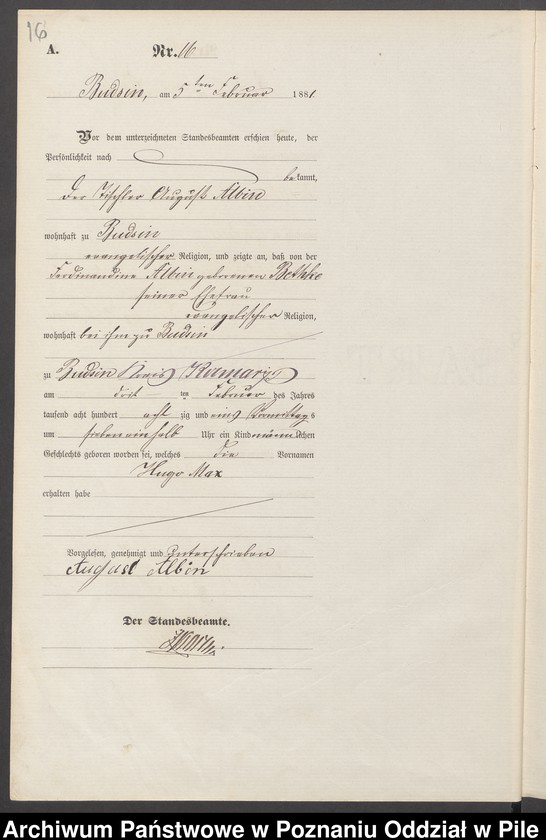 16
A. Nr. 16
Budsin, am 5 ten Februar 1881.
Vor dem unterzeichneten Standesbeamten erschien heute, der
Persönlichkeit nach
bekannt,
der Tischler August Albin
wohnhaft zu Budsin
evangelischer Religion, und zeigte an, daß von der
Ferdinandine Albin geborenen Bethke
seiner Ehefrau
evangelischer Religion,
wohnhaft bei ihm zu Budsin
zu Budsin Kreis
am ten Februar des Jahres
tausend acht hundert acht zig und eins Vormittags
um sieben einhalb Uhr ein Kind männlichen
Geschlechts geboren worden sei, welches die Vornamen
Hugo Max
erhalten habe
Vorgelesen, genehmigt und unterschrieben
August Albin
Der Standesbeamte.
Archiwum Państwowe w Poznaniu Oddział w Pile